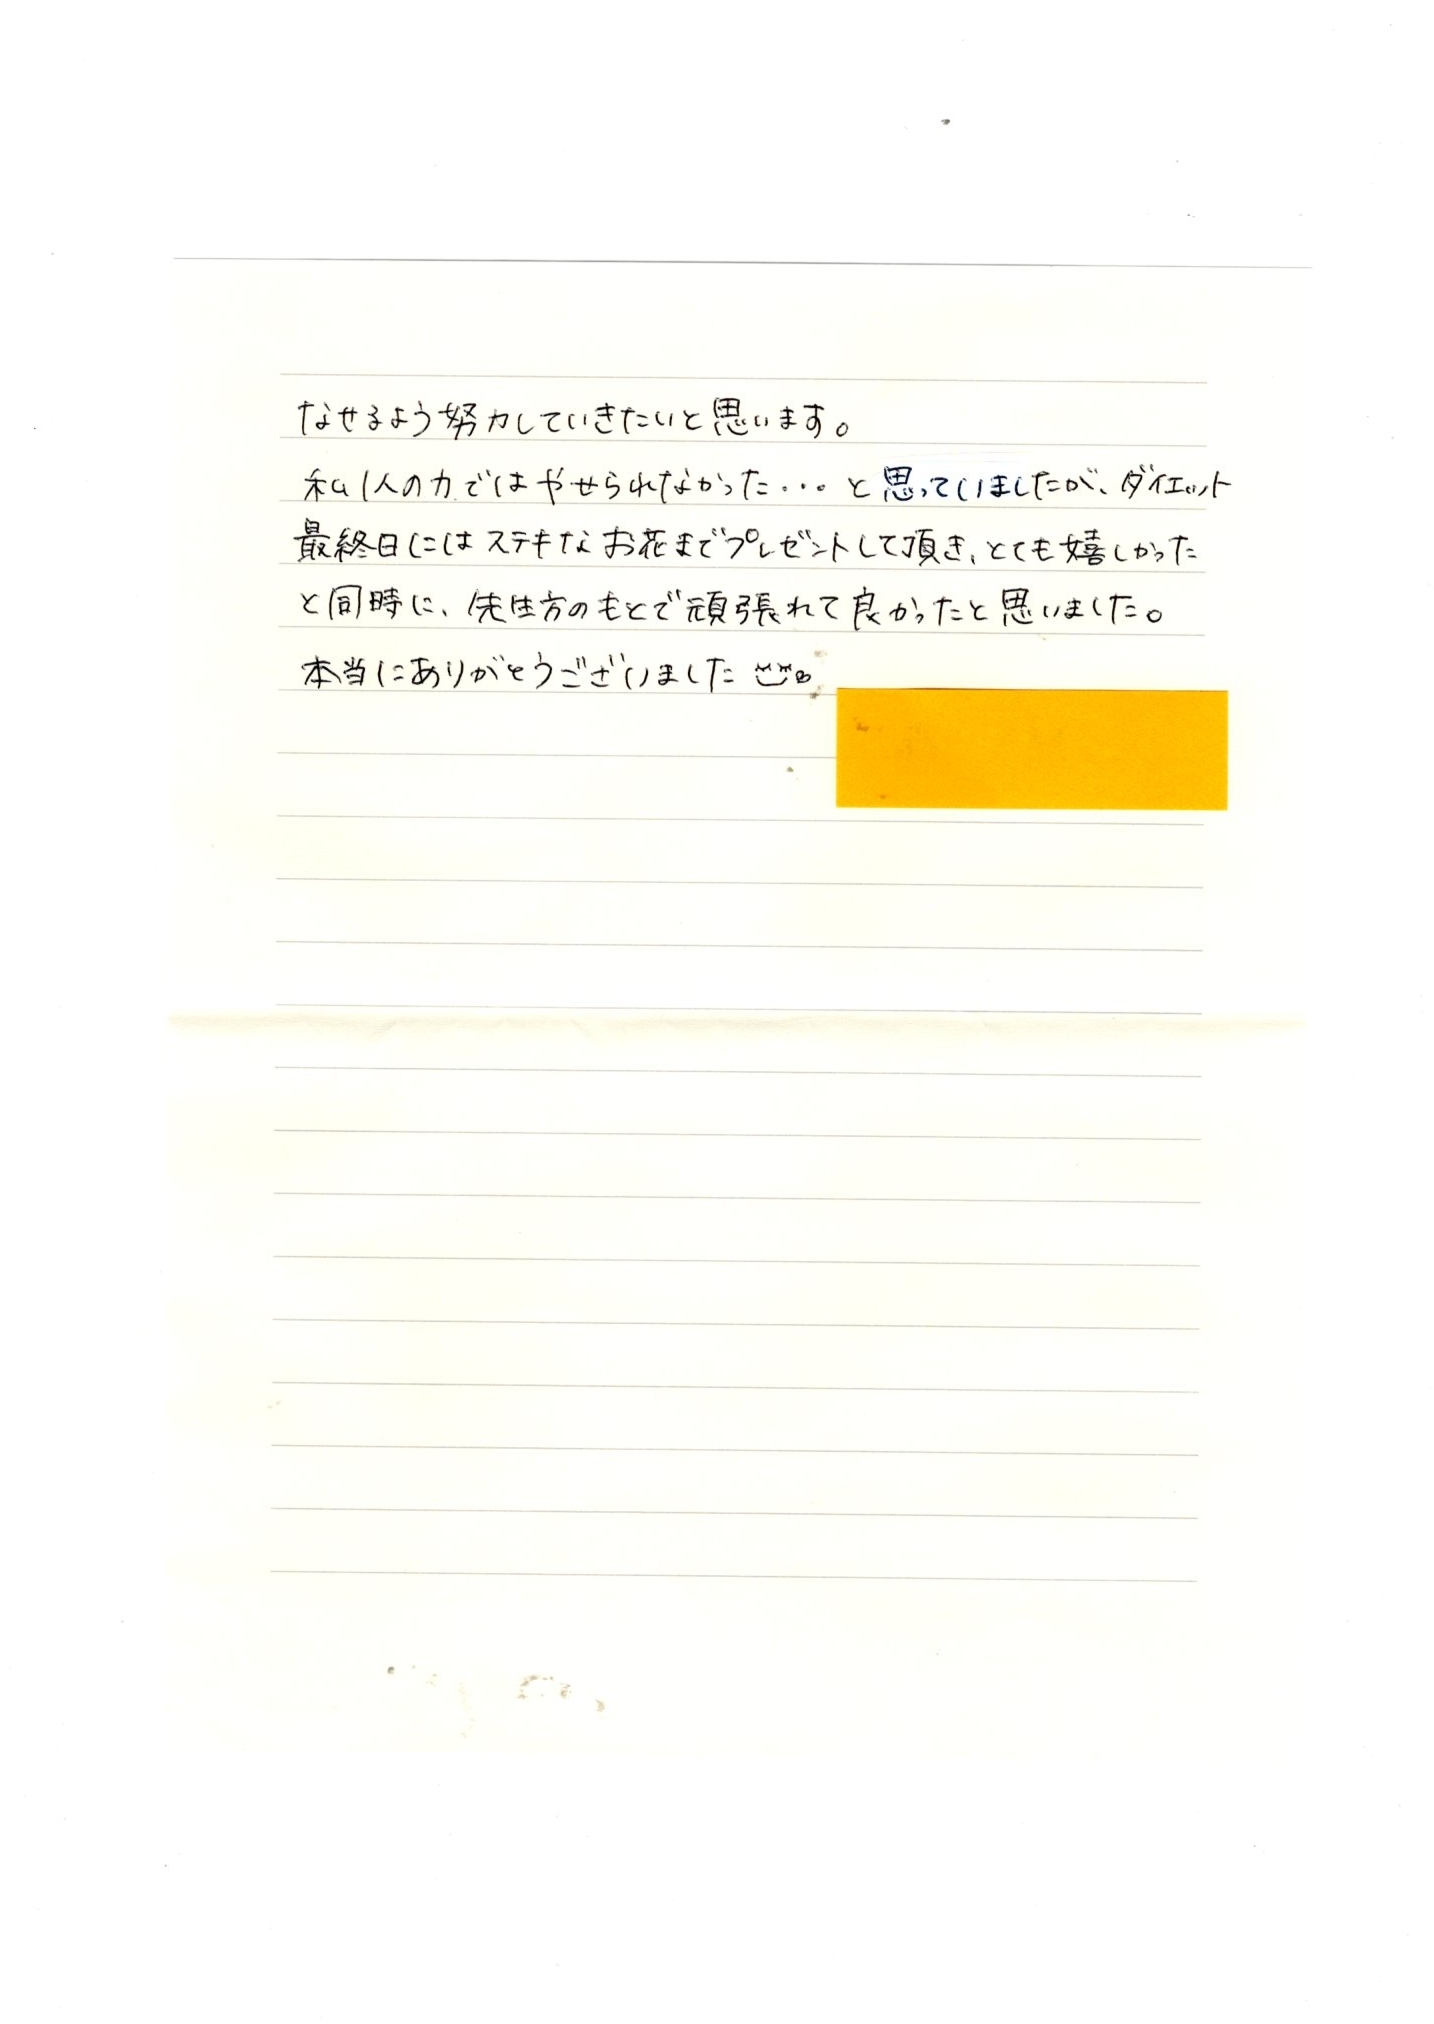 なせるよう努力していきたいと思います。
私1人の力ではやせられなかった...。と思っていましたが、ダイエット
最終日にはステキなお花までプレゼントして頂き、とても嬉しかった
と同時に、先生方のもとで頑張れて良かったと思いました。
本当にありがとうございました